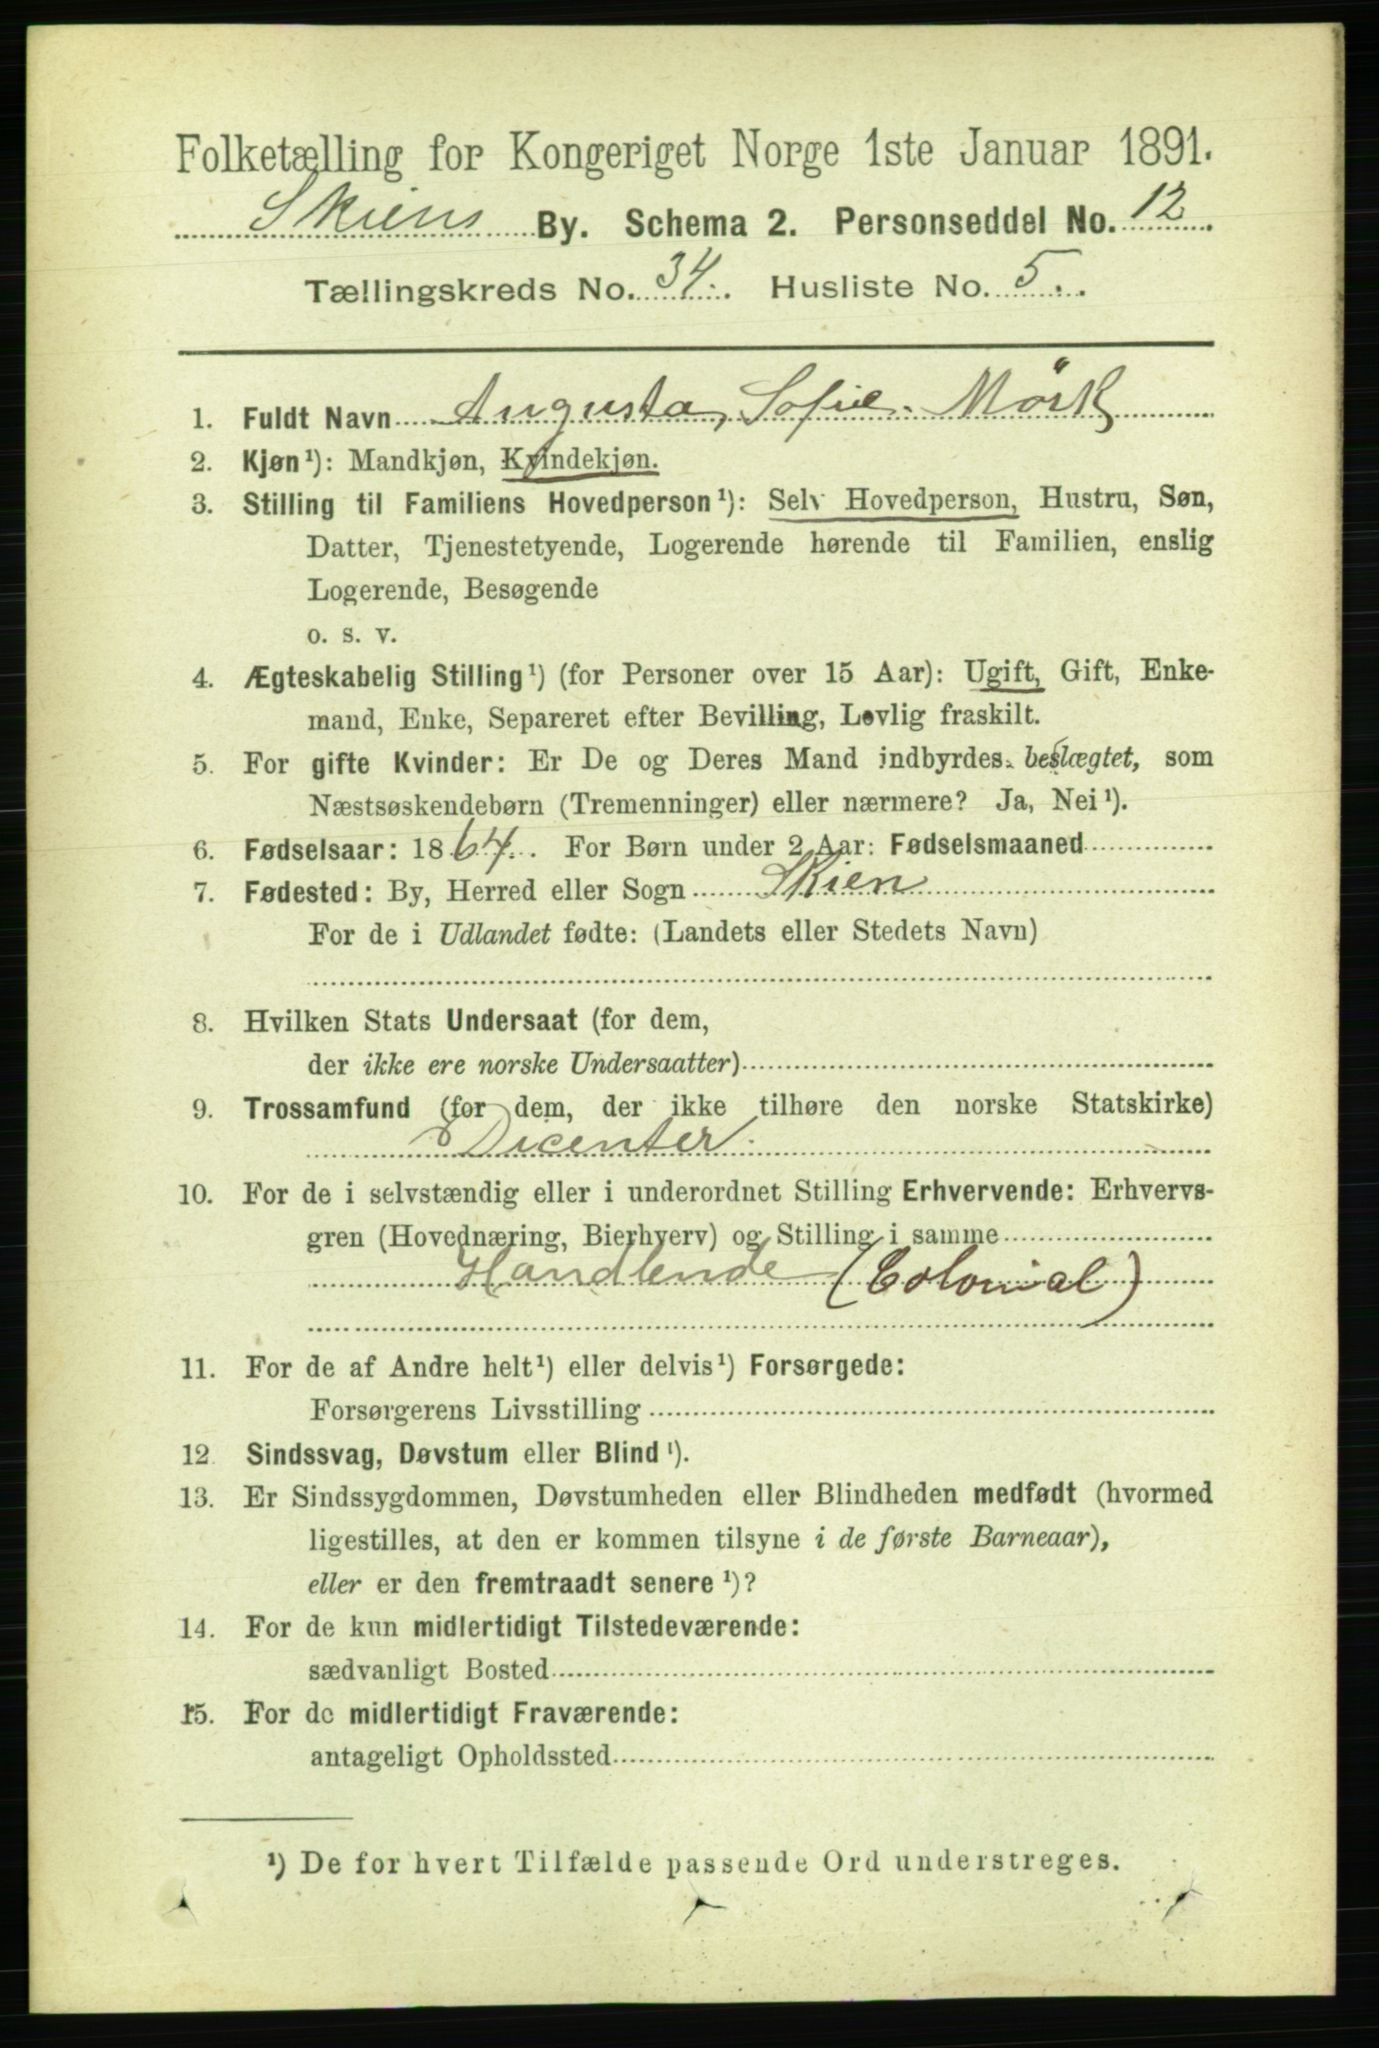 Folketælling for Kongeriget Norge 1ste Januar 1891.
Skiens By. Schema 2. Personseddel No. 12
Tællingskreds No. 34. Husliste No. 5.
1. Fuldt Navn Augusta, Sofie. Mörk
2. Kjøn¹): Mandkjøn, Kvindekjøn.
3. Stilling til Familiens Hovedperson¹): Selv Hovedperson, Hustru, Søn,
Datter, Tjenestetyende, Logerende hørende til Familien, enslig
Logerende, Besøgende
o. s. v.
4. Ægteskabelig Stilling¹) (for Personer over 15 Aar): Ugift, Gift, Enke-
mand, Enke, Separeret efter Bevilling, Lovlig fraskilt.
5. For gifte Kvinder: Er De og Deres Mand indbyrdes beslægtet, som
Næstsøskendebørn (Tremenninger) eller nærmere? Ja, Nei¹).
6. Fødselsaar: 1864. For Børn under 2 Aar: Fødselsmaaned
7. Fødested: By, Herred eller Sogn Skien
For de i Udlandet fødte: (Landets eller Stedets Navn)
8. Hvilken Stats Undersaat (for dem,
der ikke ere norske Undersaatter)
9. Trossamfund (for dem, der ikke tilhøre den norske Statskirke)
Dicenter.
10. For de i selvstændig eller i underordnet Stilling Erhvervende: Erhvervs-
gren (Hovednæring, Bierhverv) og Stilling i samme
Handlende (Colonial)
11. For de af Andre helt¹) eller delvis¹) Forsørgede:
Forsørgerens Livsstilling
12 Sindssvag, Døvstum eller Blind¹).
13. Er Sindssygdommen, Døvstumheden eller Blindheden medfødt (hvormed
ligestilles, at den er kommen tilsyne i de første Barneaar),
eller er den fremtraadt senere¹)?
14. For de kun midlertidigt Tilstedeværende:
sædvanligt Bosted
15. For de midlertidigt Fraværende:
antageligt Opholdssted
¹) De for hvert Tilfælde passende Ord understreges.